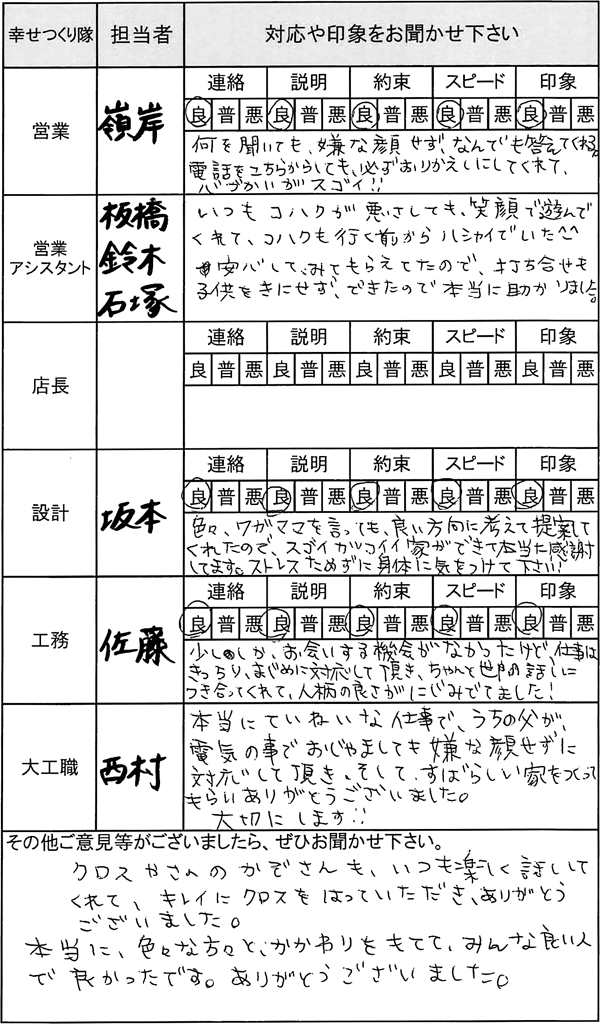 幸せつくり隊 担当者 対応や印象をお聞かせ下さい
営業 嶺岸
連絡 説明 約束 スピード 印象
良 普 悪 良 普 悪 良 普 悪 良 普 悪 良 普 悪
何を聞いても、嫌な顔せず、なんでも答えてくれる。
電話をこちらからしても、必ずおりかえしにしてくれて、
心づかいがスゴイ!!
営業
アシスタント
板橋
鈴木
石塚
いつもコハクが悪さしても、笑顔で遊んで
くれて、コハクも行く前からハシャイでいた^^
安心して、みてもらえてたので、打ち合せも
子供をきにせず、できたので本当に助かりました。
店長
連絡 説明 約束 スピード 印象
良 普 悪 良 普 悪 良 普 悪 良 普 悪 良 普 悪
設計 坂本
連絡 説明 約束 スピード 印象
良 普 悪 良 普 悪 良 普 悪 良 普 悪 良 普 悪
色々、ワガママを言っても、良い方向に考えて提案して
くれたので、スゴイカッコイイ家ができて本当に感謝
してます。ストレスためずに身体に気をつけて下さい!
工務 佐藤
連絡 説明 約束 スピード 印象
良 普 悪 良 普 悪 良 普 悪 良 普 悪 良 普 悪
少ししか、お会いする機会がなかったけど、仕事は
きっちり、まじめに対応して頂き、ちゃんと世間話しに
つき合ってくれて、人柄の良さがにじみでてました!
大工職 西村
本当にていねいな仕事で、うちの父が、
電気の事でおじゃましても嫌な顔せずに
対応して頂き、そして、すばらしい家をつくって
もらいありがとうございました。
大切にします!!
その他ご意見等がございましたら、ぜひお聞かせ下さい。
クロスやさんのかぞさんも、いつも楽しく話して
くれて、キレイにクロスをはっていただき、ありがとう
ございました。
本当に、色々な方々と、かかわりをもてて、みんな良い人
で良かったです。ありがとうございました。